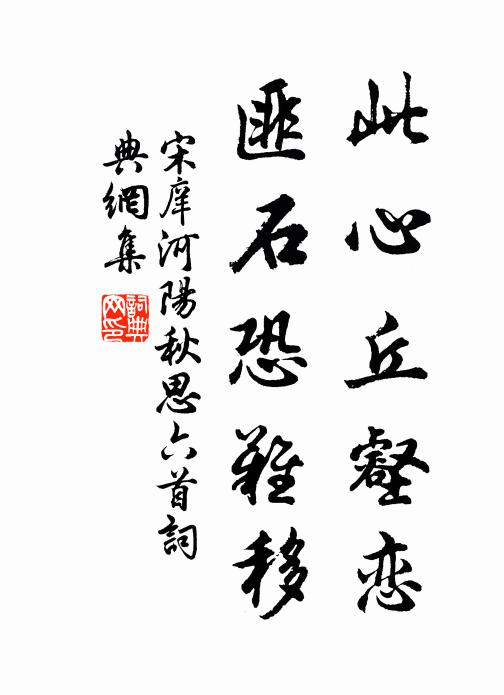 此心丘壑恋
匪石恐難移
宋庠河陽秋思六首詞
典網集
詞典网印